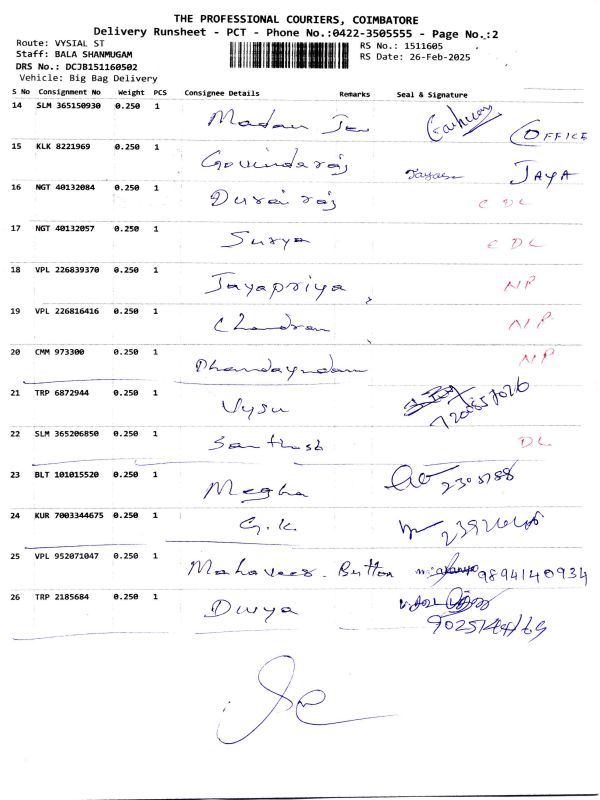 THE PROFESSIONAL COURIERS, COIMBATORE
Delivery Runsheet - PCT - Phone No.:0422-3505555 - Page No.:2
Route: VYSIAL ST RS No.: 1511605
Staff: BALA SHANMUGAM RS Date: 26-Feb-2025
DRS No.: DCJB151160502
Vehicle: Big Bag Delivery
S No Consignment No Weight PCS Consignee Details Remarks Seal & Signature
14 SLM 365150930 0.250 1 Madan OFFICE
15 KLK 8221969 0.250 1 Govindaraj JAYA
16 NGT 40132084 0.250 1 Durai raj CDL
17 NGT 40132057 0.250 1 Surya CDL
18 VPL 226839370 0.250 1 Jayapriya NP
19 VPL 226816416 0.250 1 Chandran NP
20 CMM 973300 0.250 1 NP
21 TRP 6872944 0.250 1 Vysu
22 SLM 365206850 0.250 1 Santhosh DL
23 BLT 101015520 0.250 1 Megha
24 KUR 7003344675 0.250 1 G.K
25 VPL 952071047 0.250 1 Mahaveer. Button 9894140934
26 TRP 2185684 0.250 1 Divya